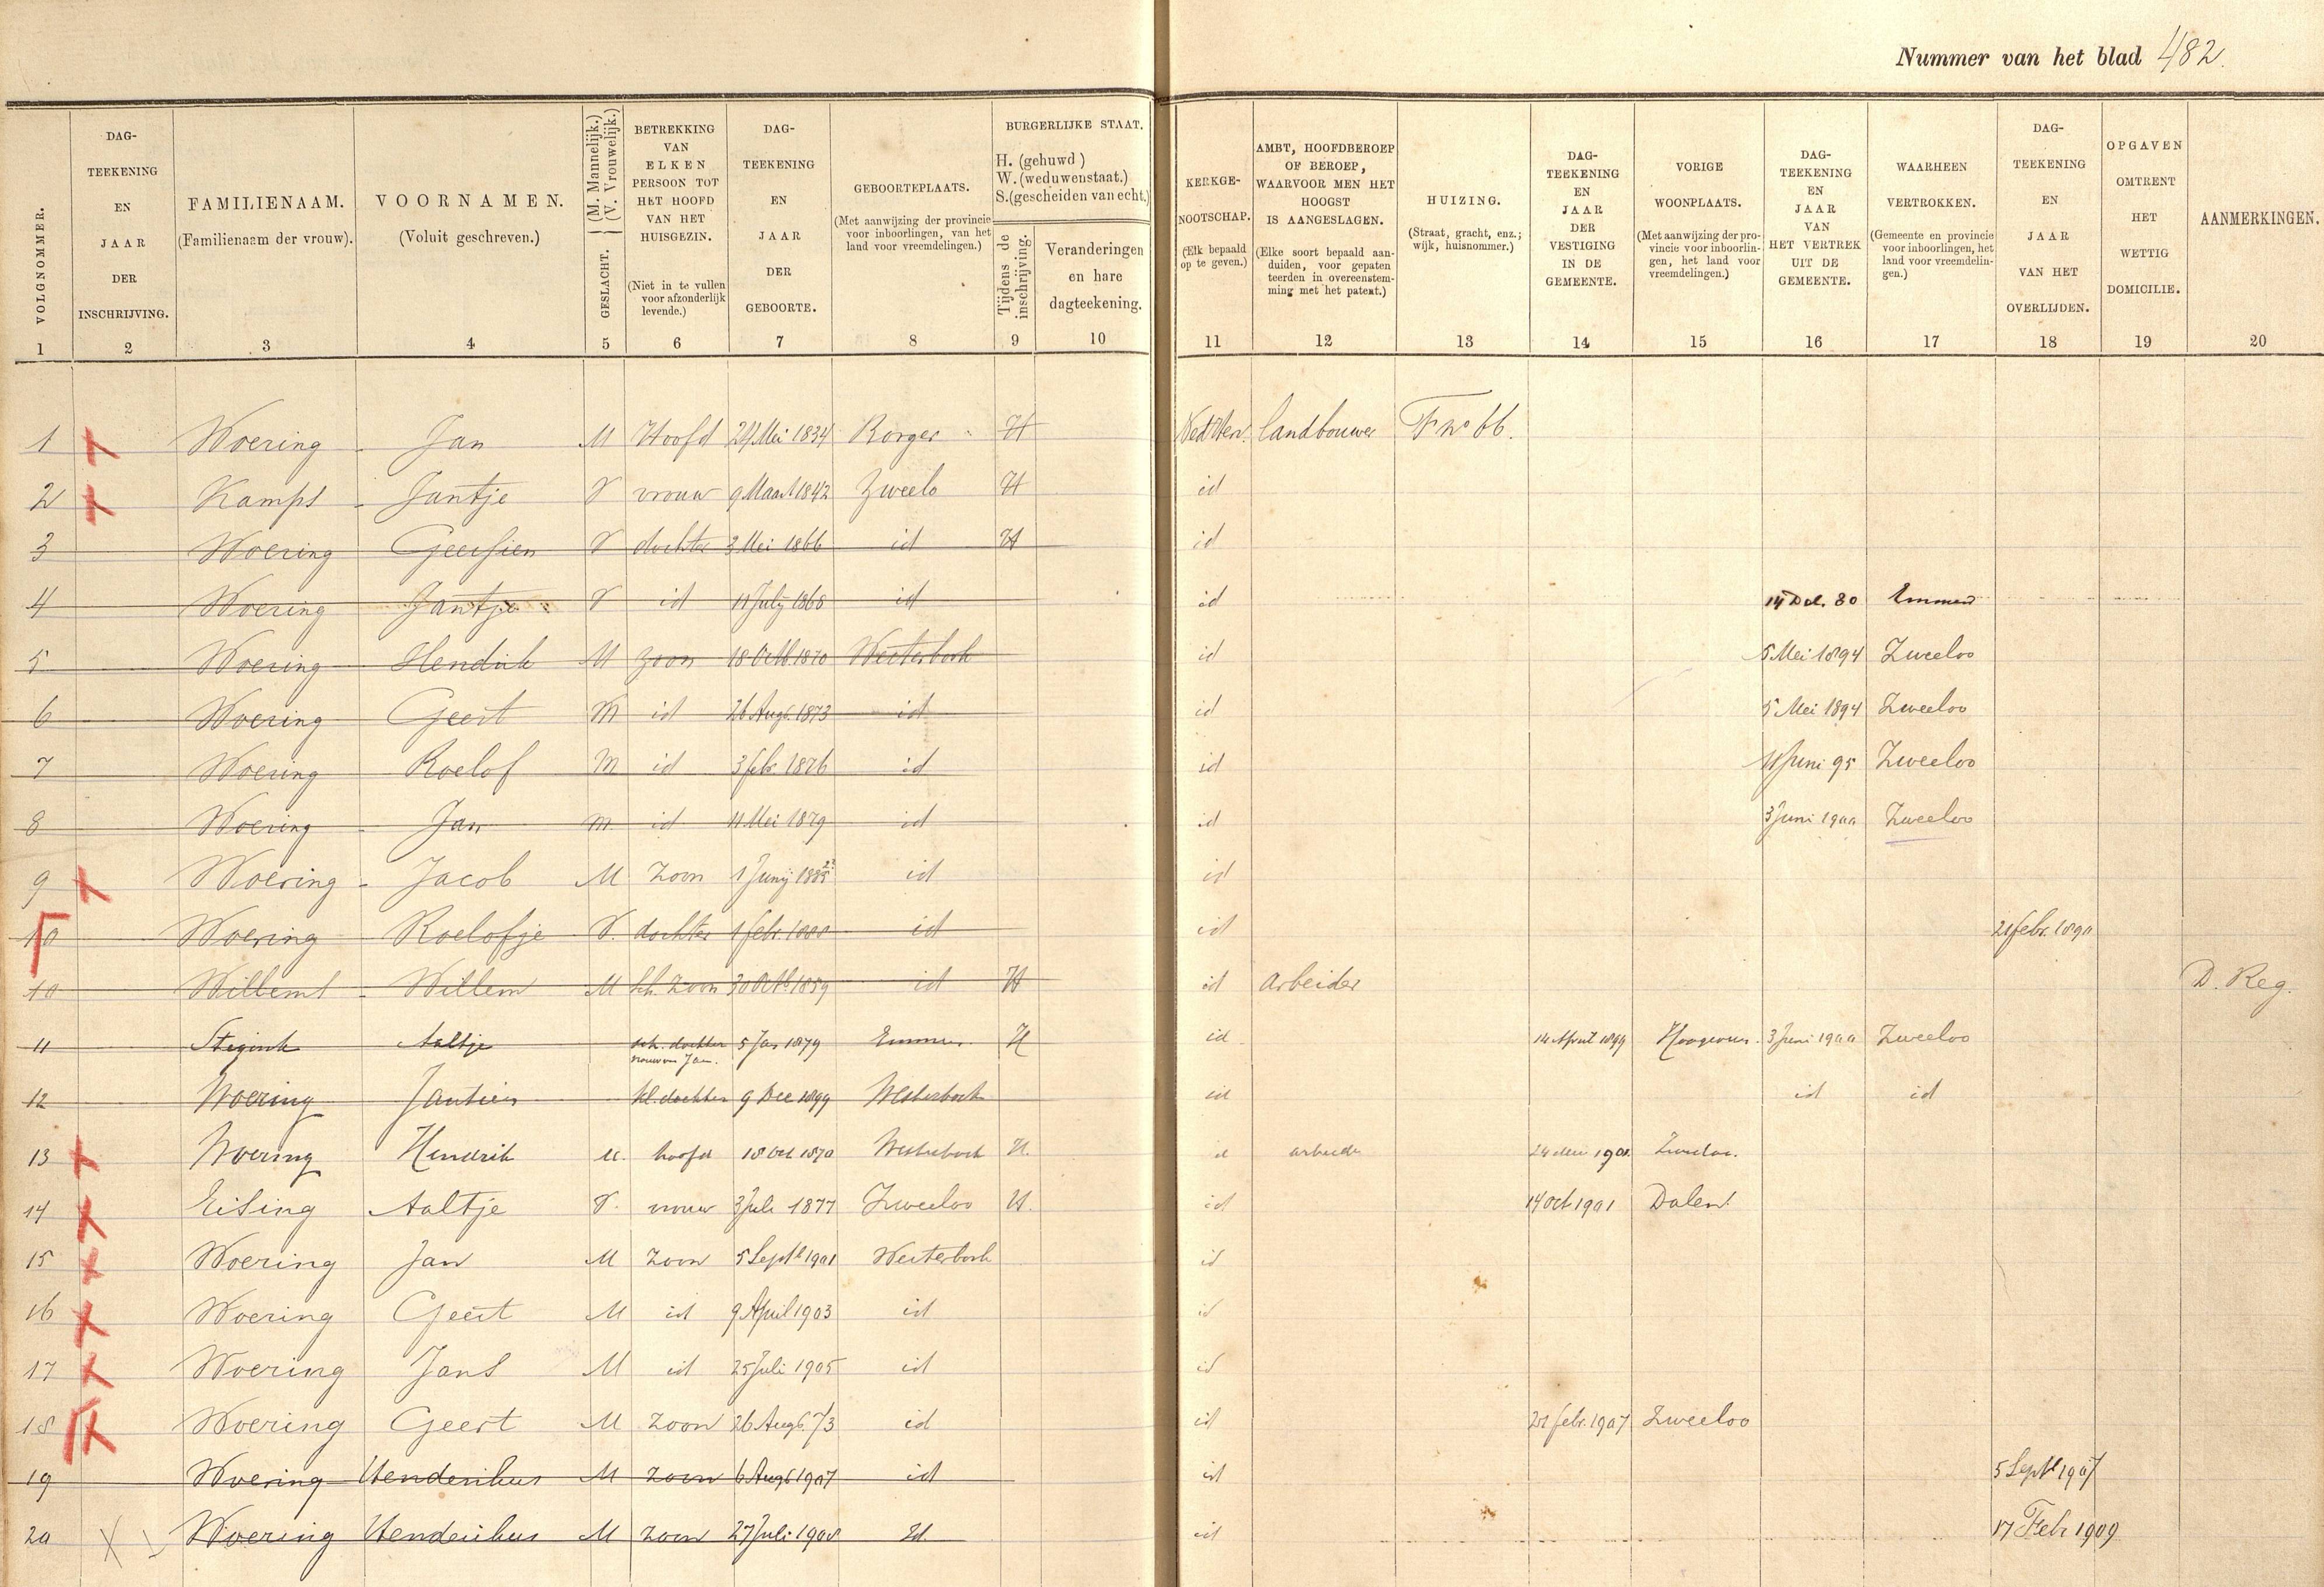 Nummer van het blad 482.
VOLGNOMMER.
DAG-
TEEKENING
EN
JAAR
DER
INSCHRIJVING.
FAMILIENAAM.
(Familienaam der vrouw).
VOORNAMEN.
(Voluit geschreven.)
GESLACHT. (M. Mannelijk.) (V. Vrouwelijk.)
BETREKKING
VAN
ELKEN
PERSOON TOT
HET HOOFD
VAN HET
HUISGEZIN.
(Niet in te vullen
voor afzonderlijk
levende.)
DAG-
TEEKENING
EN
JAAR
DER
GEBOORTE.
GEBOORTEPLAATS.
(Met aanwijzing der provincie
voor inboorlingen, van het
land voor vreemdelingen.)
BURGERLIJKE STAAT.
H. (gehuwd)
W. (weduwenstaat.)
S. (gescheiden van echt.)
Tijdens de
inschrijving.
Veranderingen
en hare
dagteekening.
KERKGE-
NOOTSCHAP.
(Elk bepaald
op te geven.)
AMBT, HOOFDBEROEP
OF BEROEP,
WAARVOOR MEN HET
HOOGST
IS AANGESLAGEN.
(Elke soort bepaald aan-
duiden, voor gepaten
teerden in overeenstem-
ming met het patent.)
HUIZING.
(Straat, gracht, enz.;
wijk, huisnommer.)
DAG-
TEEKENING
EN
JAAR
DER
VESTIGING
IN DE
GEMEENTE.
VORIGE
WOONPLAATS.
(Met aanwijzing der pro-
vincie voor inboorlin-
gen, het land voor
vreemdelingen.)
DAG-
TEEKENING
EN
JAAR
VAN
HET VERTREK
UIT DE
GEMEENTE.
WAARHEEN
VERTROKKEN.
(Gemeente en provincie
voor inboorlingen, het
land voor vreemdelin-
gen.)
DAG-
TEEKENING
EN
JAAR
VAN HET
OVERLIJDEN.
OPGAVEN
OMTRENT
HET
WETTIG
DOMICILIE.
AANMERKINGEN.
1 2 3 4 5 6 7 8 9 10 11 12 13 14 15 16 17 18 19 20
1 Woering Jan M Hoofd 24 Mei 1834 Borger H Ned Herv. landbouwer F no 66.
2 Kamps Jantje V vrouw 9 Maart 1842 Zweelo H id
3 Woering Geesien V dochter 3 Mei 1866 id H id
4 Woering Jantje V id 11 July 1868 id id Emmen
5 Woering Hendrik M zoon 18 Octb. 1870 Westerbork id 5 Mei 1894 Zweeloo
6 Woering Geert M id 26 Augs. 1873 id id 5 Mei 1894 Zweeloo
7 Woering Roelof M id 3 febr. 1876 id id Juni 95 Zweeloo
8 Woering Jan M id 11 Mei 1879 id id 3 Juni 1900 Zweeloo
9 Woering Jacob M zoon 1 Junij id id
10 Woering Roelofje V. dochter 1 febr. id id febr. 1890
10 Willems Willem M zoon 30 Octb. 1859 id H id arbeider D. Reg.
11 Stegink Aaltje sch. dochter 5 Jan 1879 Emmen H id 14 April 1899 3 Juni 1900 Zweeloo
vrouw van Jan.
12 Woering Jantien kl. dochter 9 Dec 1899 Westerbork id id id
13 Woering Hendrik M. hoofd 18 Oct 1870 Westerbork H. id arbeider 24 Mei Zweeloo.
14 Eising Aaltje V. vrouw 3 Juli 1877 Zweeloo H. id 14 Oct 1901 Dalen.
15 Woering Jan M zoon 5 Septb 1901 Westerbork id
16 Woering Geert M id 9 April 1903 id id
17 Woering Jans M id 25 Juli 1905 id id
18 Woering Geert M zoon 26 Augs. 73 id id febr. 1907 Zweeloo
19 Woering Henderikus M zoon 6 Augs 1907 id id 5 Septb 1907
20 Woering Henderikus M zoon 27 Juli 1908 Id. id 17 Feb 1909